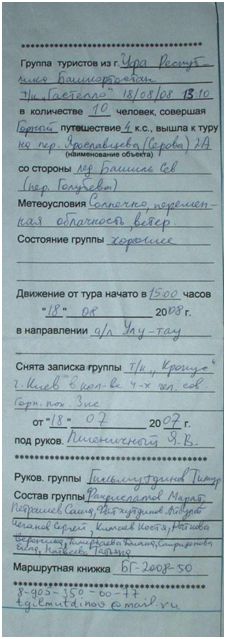 Группа туристов из г. Уфа Респуб-
лика Башкортостан
т/к „Гастелло" 18/08/08 13.10
в количестве 10 человек, совершая
Горный путешествие 4 к.с., вышла к туру
на пер. Ярославцева (Серова) 2А
(наименование объекта)
со стороны лед. Башиль Сев
(пер. Голубева)
Метеоусловия Солнечно, перемен-
ная облачность, ветер.
Состояние группы хорошее
Движение от тура начато в 15:00 часов
"18" 08 2008 г.
в направлении д/л Улу-тау
Снята записка группы т/к „Кропус"
г. Киев в кол-ве 4-х чел. сов.
Горн. пох. 3кс
от "18" 07 2007 г.
под руков. Пшеничный Я.В.
Руков. группы Гильмутдинов Тимур
Состав группы Рахисламов Марат,
Петрашев Саша,
Сергей, Костя,
Вероника,
Татьяна
Маршрутная книжка БГ-2008-50
8-905-350-00-77
tgilmutdinov@mail.ru